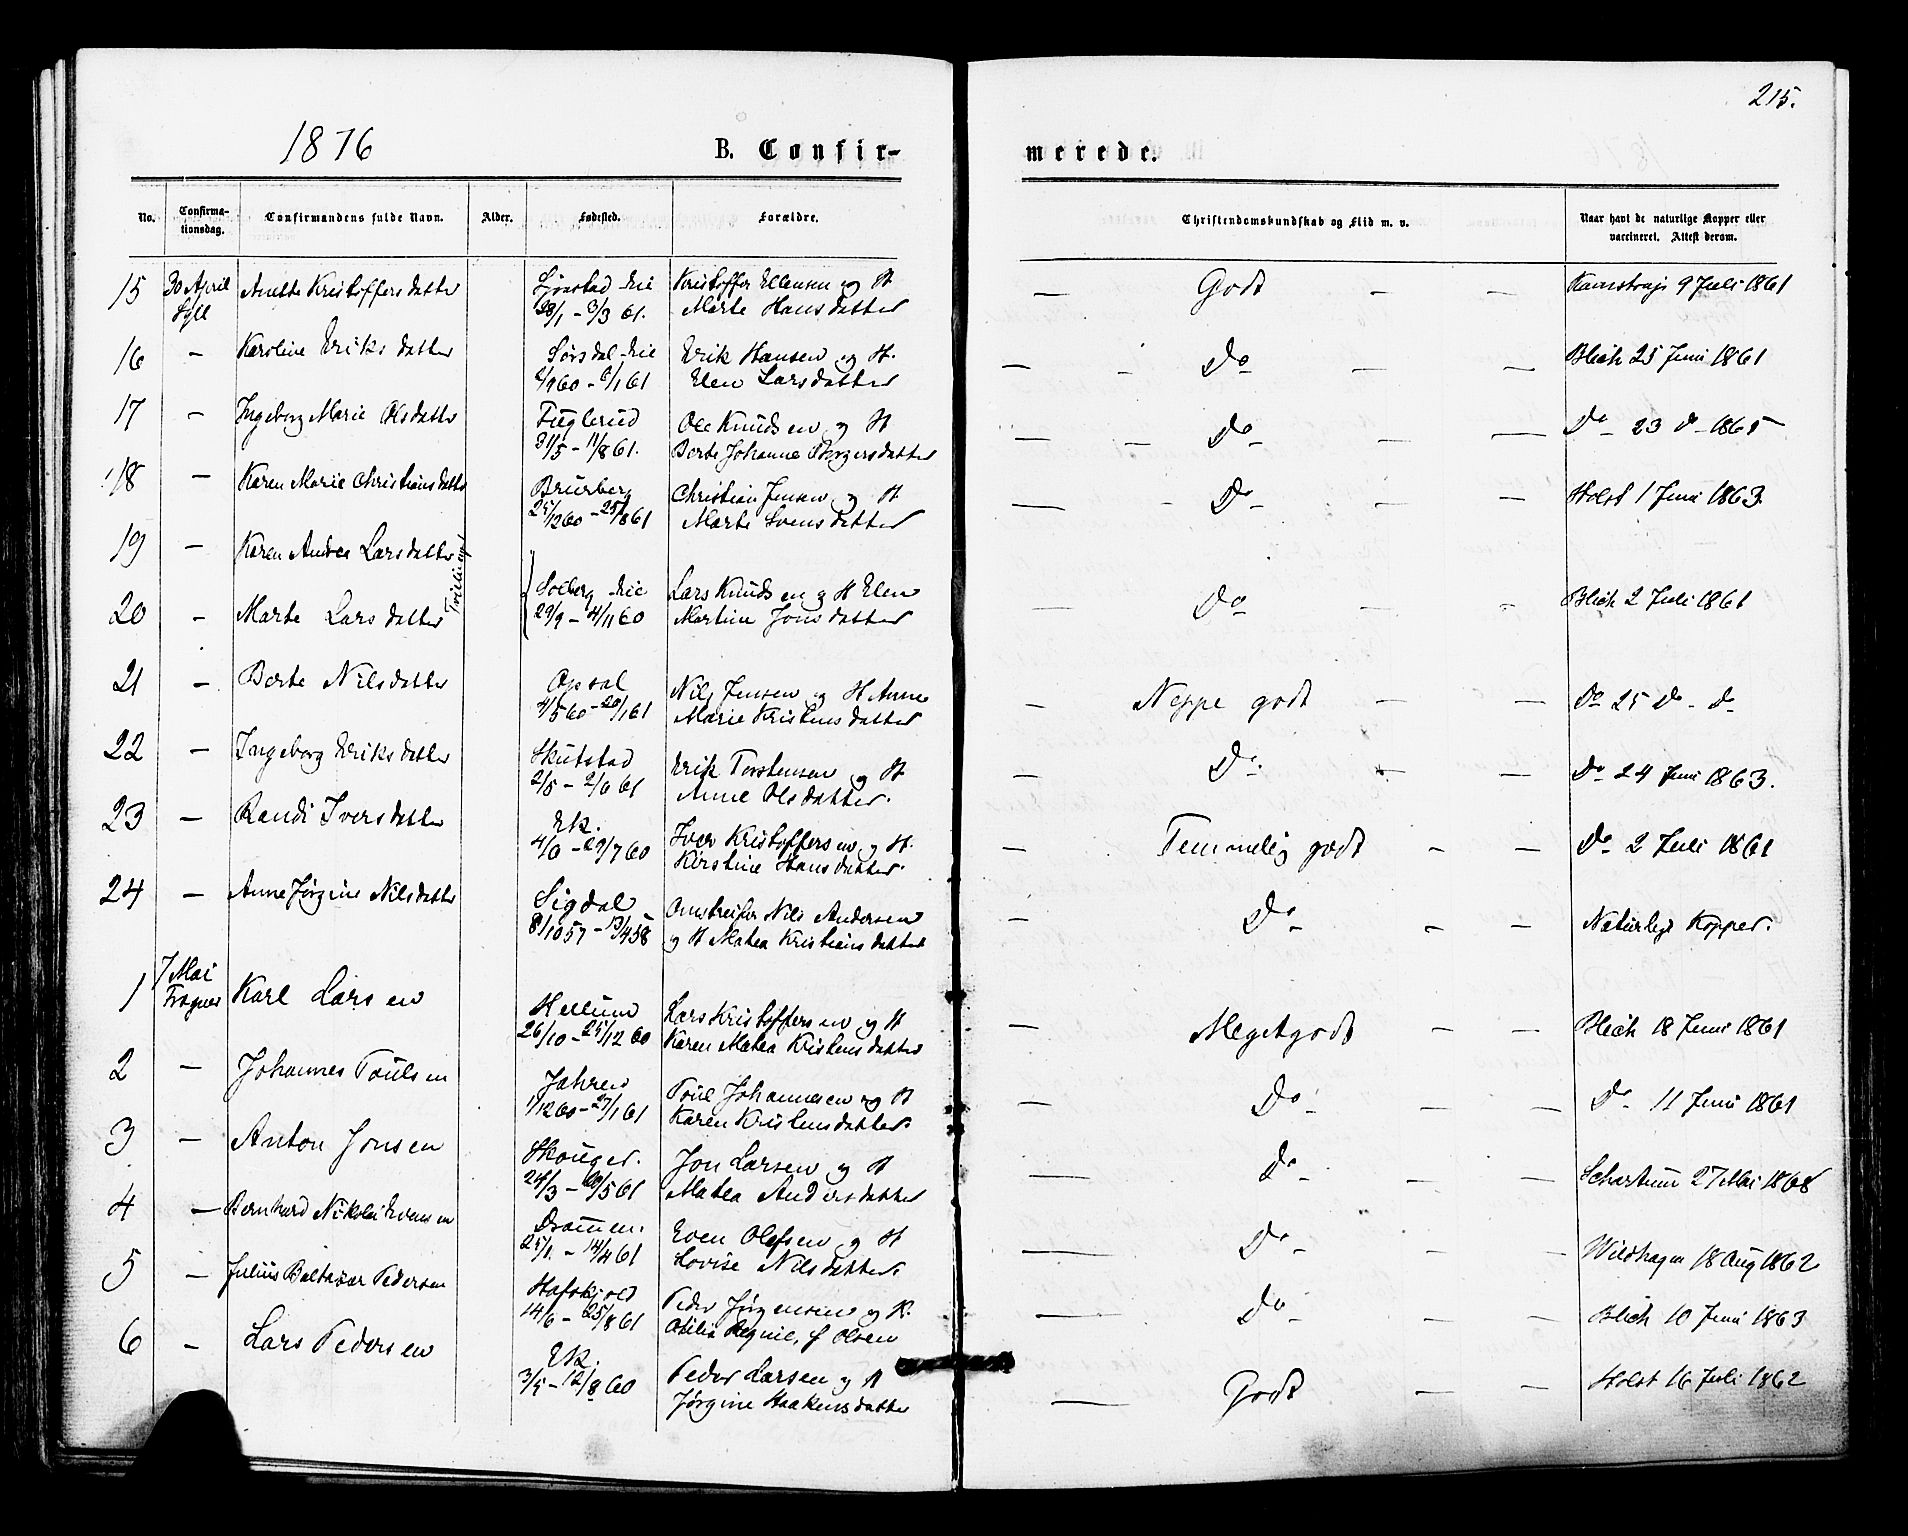 215.
1876 B. Confir- merede.
No. Confirma- tionsdag. Confirmandens fulde Navn. Alder. Fødested. Forældre. Christendomskundskab og Flid m. v. Naar havt de naturlige Kopper eller vaccineret. Attest derom.
15 30 April Anette Kristoffersdatter eie Kristoffer Ellensen og H — Godt — — 9 Juli 1861
Syll 28/1 – 3/3 61. Marte Hansdatter
16 – Karoline Eriksdatter Sørsdal eie Erik Hansen og H. — – Do — — Blich 25 Juni 1861
2/9 60 – 6/1 61 Elen Larsdatter
17 – Ingeborg Marie Olsdatter Fuglerud Ole Knudsen og H — — Do — — Do 23 Do 1865
31/5 – 11/8 61. Berte Johanne Borgersdatter
18 – Karen Marie Christiansdatter Brurberg Christian Jensen og H — – Do — — Holst 1 Juni 1863
25/12 60 – 25/8 61 Marte Svensdatter
19 – Karen Andrea Larsdatter
Tvillinger
Solberg eie Lars Knudsen og H Elen — Do — – Blich 2 Juli 1861
20 – Marte Larsdatter 29/9 – 4/11 60 Martine Jonsdatter
21 – Berte Nilsdatter Opsal Nils Jensen og H Anne – Neppe godt — — Do 25 Do – Do
4/5 60 – 20/1 61 Marie Kristensdatter
22 – Ingeborg Eriksdatter Skutstad Erik Torstensen og H — Do – — — Do 24 Juni 1863.
2/5 – 2/6 61 Anne Olsdatter.
23 – Randi Iversdatter Ek. Iver Kristoffersen og H. — Temmelig godt – — Do 2 Juli 1861
4/6 – 29/7 60 Kirstine Hansdatter.
24 – Anne Jørgine Nilsdatter Sigdal Omstreifer Nils Andersen — Do – — Naturlige Kopper.
8/10 57 – 13/4 58 og H Matea Kristiansdatter
1 7 Mai Karl Larsen Hellum Lars Kristoffersen og H — Meget godt – — Blich 18 Juni 1861
Frogner 26/10 – 25/12 60 Karen Matea Kristensdatter
2 – Johannes Poulsen Jahren Poul Johannesen og H — Do – — Do – 11 Juni 1861
1/12 60 – 27/1 61 Karen Kristensdatter
3 – Anton Jonsen Skouger. Jon Larsen og H — Do — — Schartum 27 Mai 1868
24/3 – 20/5 61 Matea Andersdatter
4 – Bernhard Nikolai Evensen Drammen. Even Olafsen og H — Do – — Wildhagen 18 Aug 1862
25/1 – 14/4 61 Lovise Nilsdatter.
5 – Julius Baltazar Pedersen Hafskjold Peder Jørgensen og H. — Do – — Blich 10 Juni 1863
14/6 – 25/8 61 Otilia f Olsen
6 – Lars Pedersen Ek. Peder Larsen og H — Godt — — Holst 16 Juli 1862
3/5 – 12/8 60 Jørgine Haakensdatter